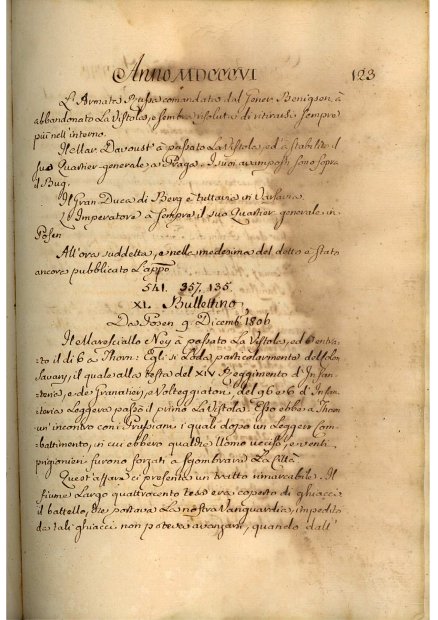 Anno MDCCCVI 123
L'Armata Russa comandata dal Gener. Benigsen, à
abbandonato La Vistola, e sembra risoluta di ritirarsi sempre
più nell'interno.
Il Mar. Davoust à passato La Vistola, ed à stabilito il
suo Quartier-generale a Praga. I suoi avamposti sono sopra
il Bug.
Il Gran Duca di Berg è tuttavia in Varsavia.
L'Imperatore à sempre il suo Quartier generale in
Posen
All'ora suddetta, e nella medesima del detto è stato
ancore pubblicato L'appo
541. 357. 135.
XL. Bullettino
Da Posen 9 Dicemb. 1806
Il Maresciallo Ney à passato La Vistola, ed è entra-
to il dì 6 a Thorn: Egli si Loda particolarmente del Colon
Savary, il quale alla testa del XIV Reggimento d'Infan-
teria, e de' Granatieri, e Volteggiatori, del 96 e 6 d'Infan-
teria Leggera passò il primo La Vistola. Esso ebbe a Thorn
un'incontro con i Prussiani, i quali dopo un Leggero Com-
battimento, in cui ebbero qualche Uomo ucciso, e venti
prigionieri furono forzati a sgombrare La Città
Quest'affare ci presenta un tratto rimarcabile. Il
fiume Largo quattrocento tese era coperto di ghiacci:
il battello, che portava La nostra Vanguardia, impedito
da tali ghiacci non poteva avanzarsi, quando dall'